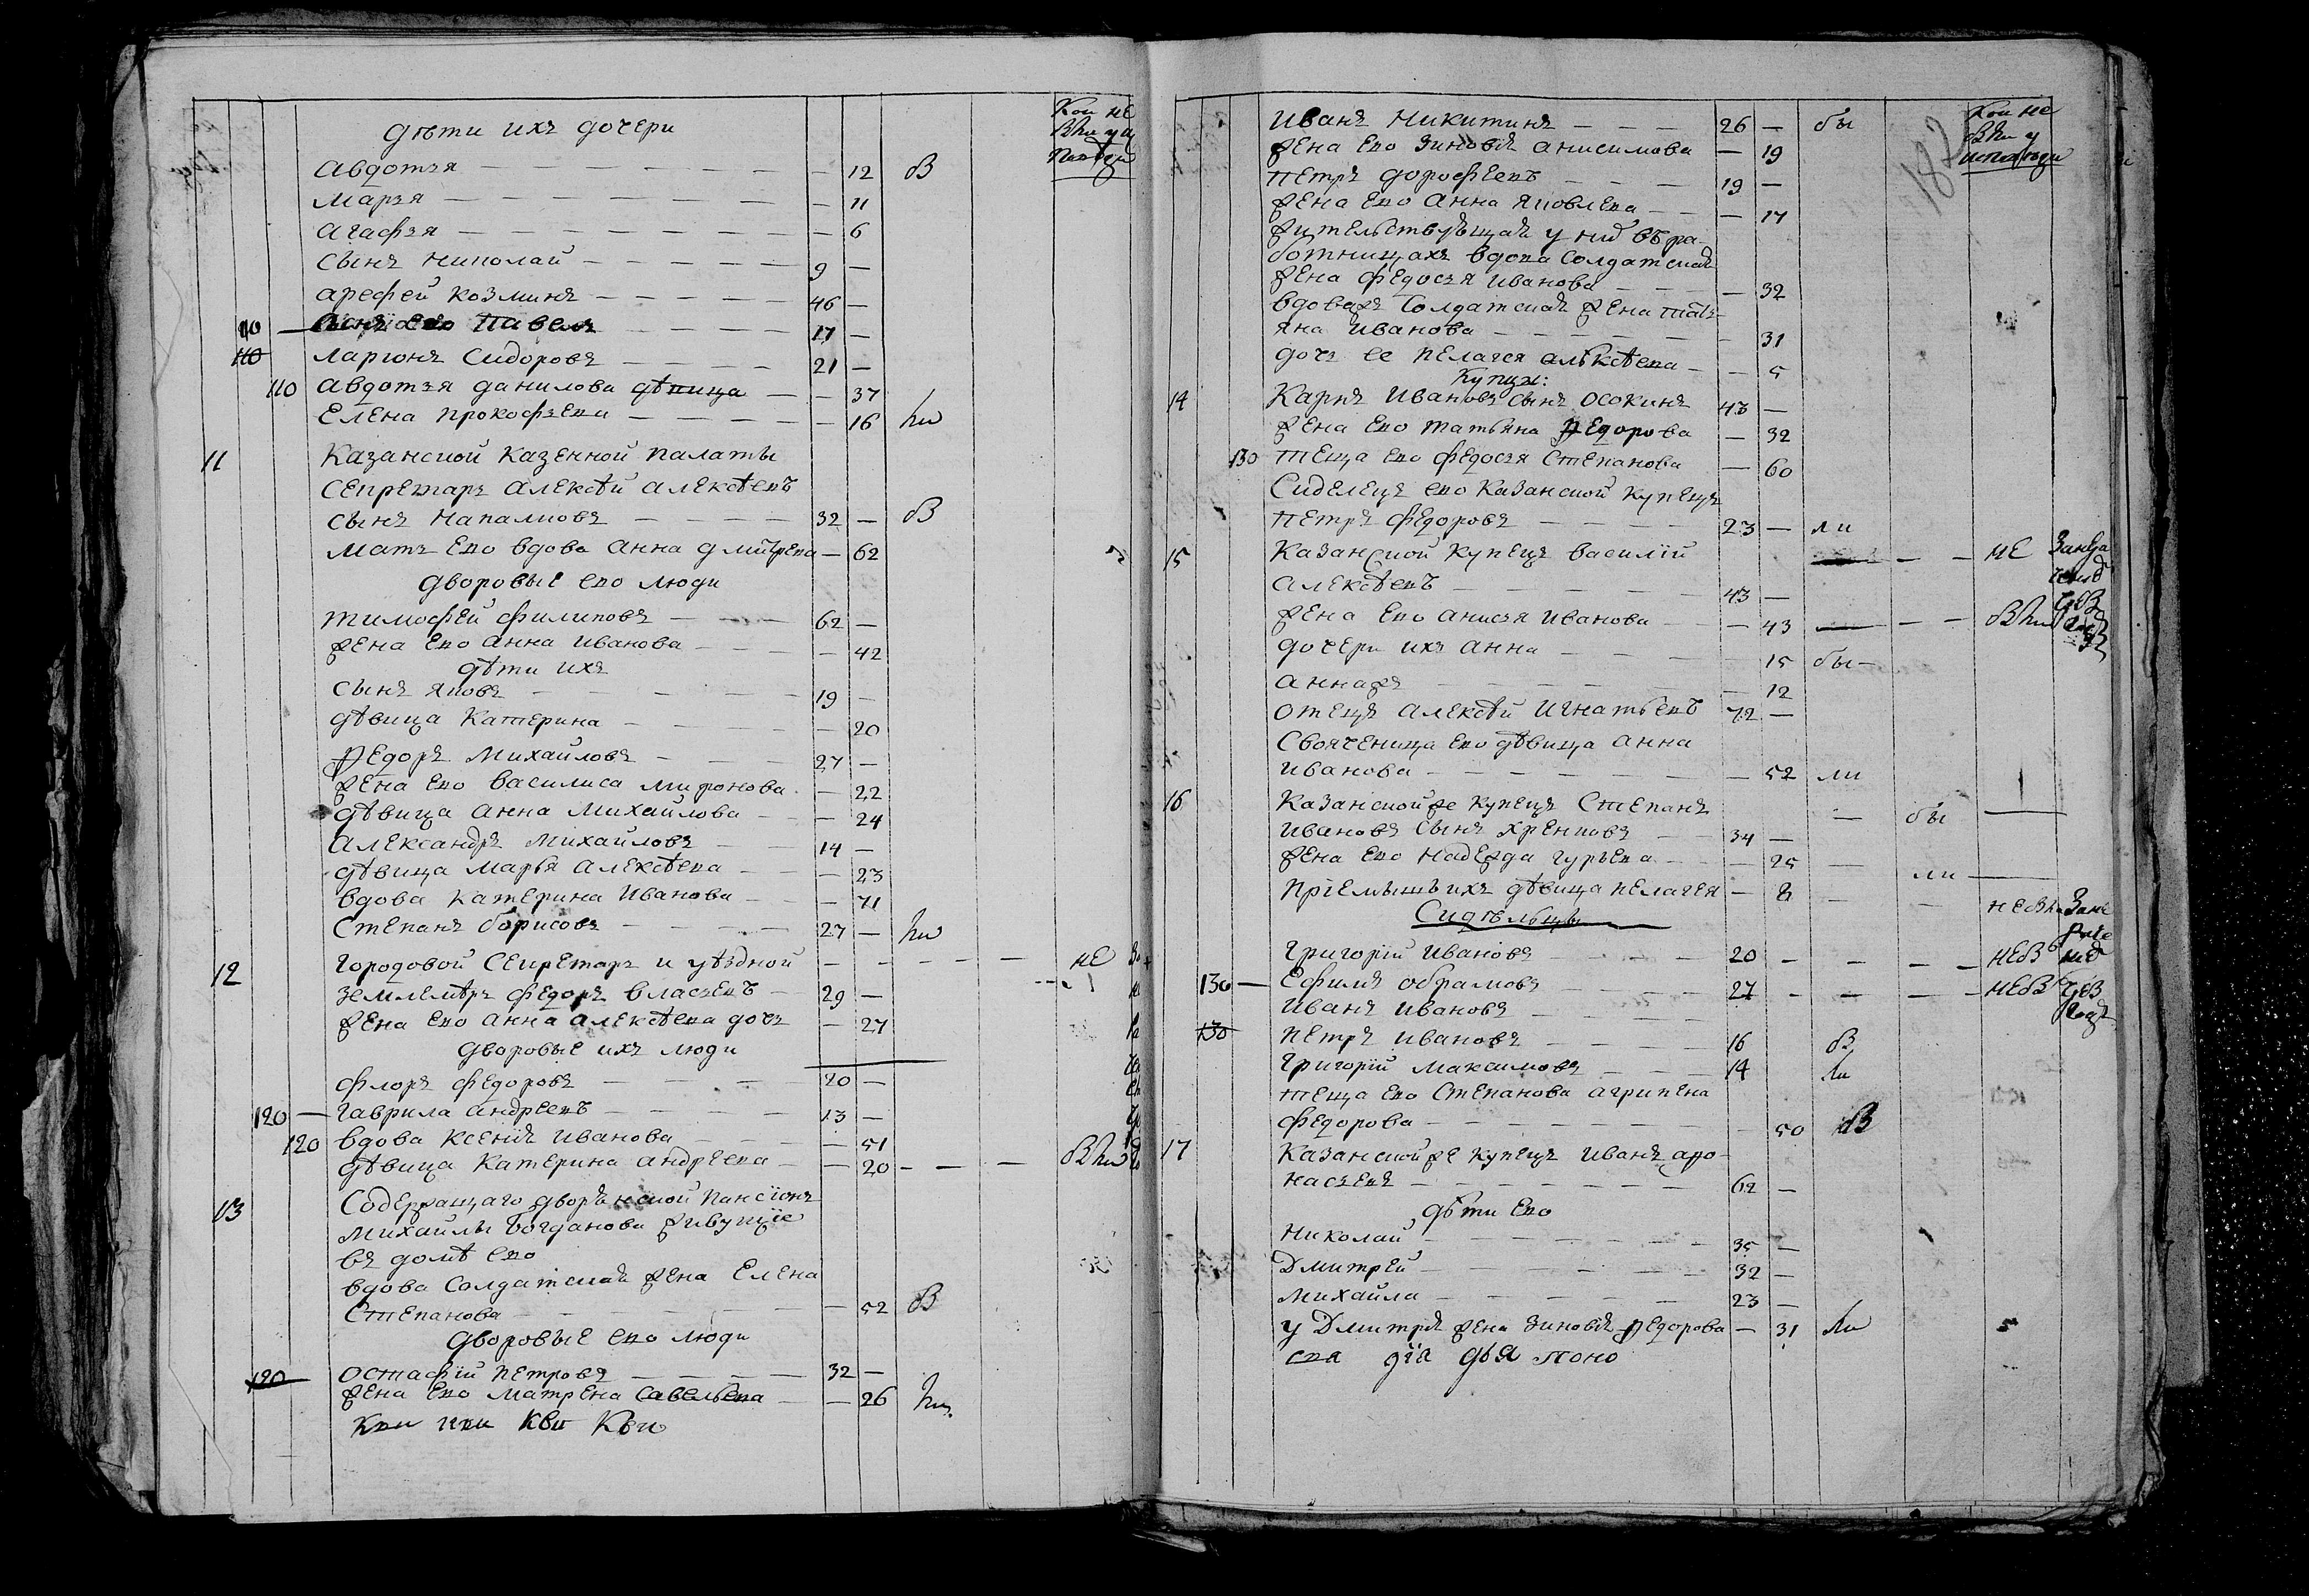 Кои не
дѣти ихъ дочери
Авдотья — — 12 в
Марья — — 11
Агафья — — 6
сынъ Николай — 9 —
Арефей Козминъ — 46 —
110 — Павелъ — 17 —
110 Ларионъ Сидоровъ — 21 —
110 Авдотья Данилова дѣвица — — 37
Елена Прокофьева — — 16
11 Казанской казенной палаты
секретарь Алексѣй Алексѣевъ
сынъ — 32 — в
мать ево вдова Анна Дмитрева — 62
дворовые ево люди
Тимофей Филиповъ — 62 —
жена ево Анна Иванова — — 42
дѣти ихъ
сынъ Яковъ — 19 —
дѣвица Катерина — — 20
Федоръ Михайловъ — 27 —
жена ево Василиса Миронова — 22
дѣвица Анна Михайлова — — 24
Александръ Михайловъ — 14 —
дѣвица Марья Алексѣева — — 23
вдова Катерина Иванова — — 71
Степанъ Борисовъ — 27 —
12 городовой секретарь и уѣздной — — не
землемѣръ Федоръ Власьевъ — 29 —
жена ево Анна Алексѣева дочь — 27
дворовые ихъ люди
Флоръ Федоровъ — 20 —
120 — Гаврила Андреевъ — 13 —
120 вдова Ксенія Иванова — — 51
дѣвица Катерина Андреева — — 20 — —
13 Содержащаго дворянской пансіонъ
Михайлы Богданова живущіе
въ домѣ ево
вдова солдатская жена Елена
Степанова — — 52 в
дворовые ево люди
120 Остафій Петровъ — 32 —
жена ево Матрена Савельева — — 26
Иванъ Никитинъ — 26 — бы
жена ево Зиновія Анисимова — 19
Петръ Дорофеевъ — 19 —
жена ево Анна Яковлева — — 17
жительствующая у нихъ въ ра-
ботницахъ вдова солдатская
жена Федосья Иванова — — 32
вдоважъ солдатская жена Тать-
яна Иванова — — 31
дочь ее Пелагея Алексѣева — — 5
Купцы:
14 Карпъ Ивановъ сынъ Осокинъ 43 —
жена ево Татьяна Федорова — 32
130 теща ево Федосья Степанова — 60
сиделецъ ево казанской купецъ
Петръ Федоровъ — 23 — ли
15 Казанской купецъ Василій — — не
Алексѣевъ — 43 —
жена ево Анисья Иванова — — 43 — —
дочери ихъ Анна — — 15 бы —
Аннажъ — — 12
отецъ Алексѣй Игнатьевъ 72 —
свояченица ево дѣвица Анна
Иванова — — 52 ли
16 Казанскойже купецъ Степанъ — бы —
Ивановъ сынъ Хренковъ — 34 —
жена ево Надежда Гурьева — — 25 —
ли —
пріемышъ ихъ дѣвица Пелагея — 8 — —
Сидѣльцы
Григорій Ивановъ — 20 — — —
130 — Ефимъ Абрамовъ — 27 — — —
Иванъ Ивановъ —
130 Петръ Ивановъ — 16 в
Григорій Максимовъ — 14 ли
теща ево Степанова Агрипена
Федорова — — 50 в
17 Казанскойже купецъ Иванъ Афо-
насьевъ — 62 —
дѣти ево
Николай — 35 —
Дмитрей — 32 —
Михайла — 23 —
у Дмитрія жена Зиновія Федорова — 31 ли